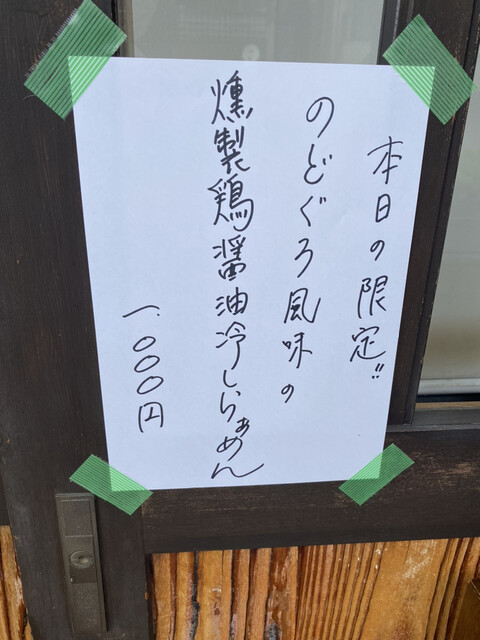 本日の限定!!
のどぐろ風味の
燻製鶏醤油冷しらぁめん
一.〇〇〇円